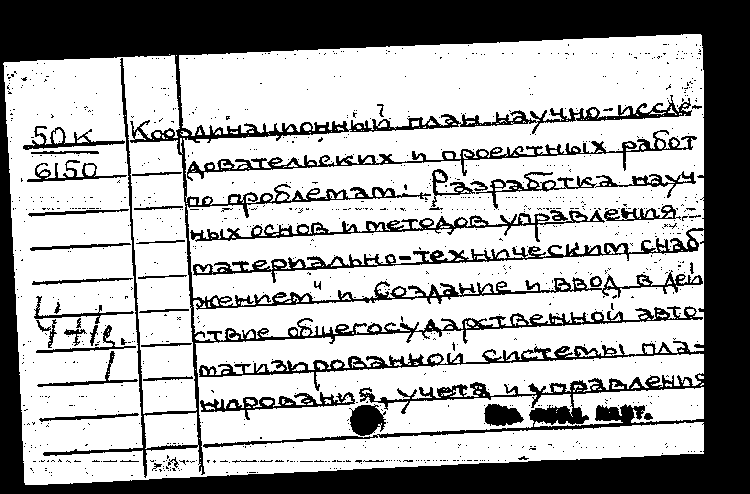 50к Координационный план научно-иссле-
6150 довательских и проектных работ
по проблемам: „Разработка науч-
ных основ и методов управления
материально-техническим снаб-
жением" и „Создание и ввод в дей-
ствие общегосударственной авто-
матизированной системы пла-
нирования, учета и управления